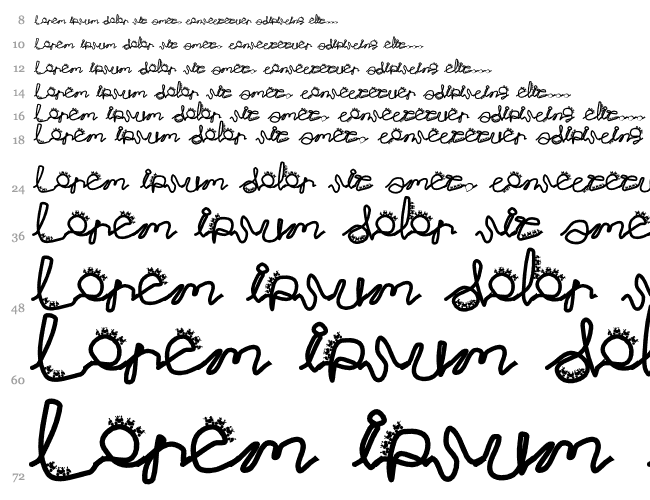 8 Lorem ipsum dolor sit amet, consectetuer adipiscing elit....
10 Lorem ipsum dolor sit amet, consectetuer adipiscing elit....
12 Lorem ipsum dolor sit amet, consectetuer adipiscing elit....
14 Lorem ipsum dolor sit amet, consectetuer adipiscing elit....
16 Lorem ipsum dolor sit amet, consectetuer adipiscing elit....
18 Lorem ipsum dolor sit amet, consectetuer adipiscing
24 Lorem ipsum dolor sit amet, consectetu
36 Lorem ipsum dolor sit ame
48 Lorem ipsum dolor
60 Lorem ipsum dol
72 Lorem ipsum